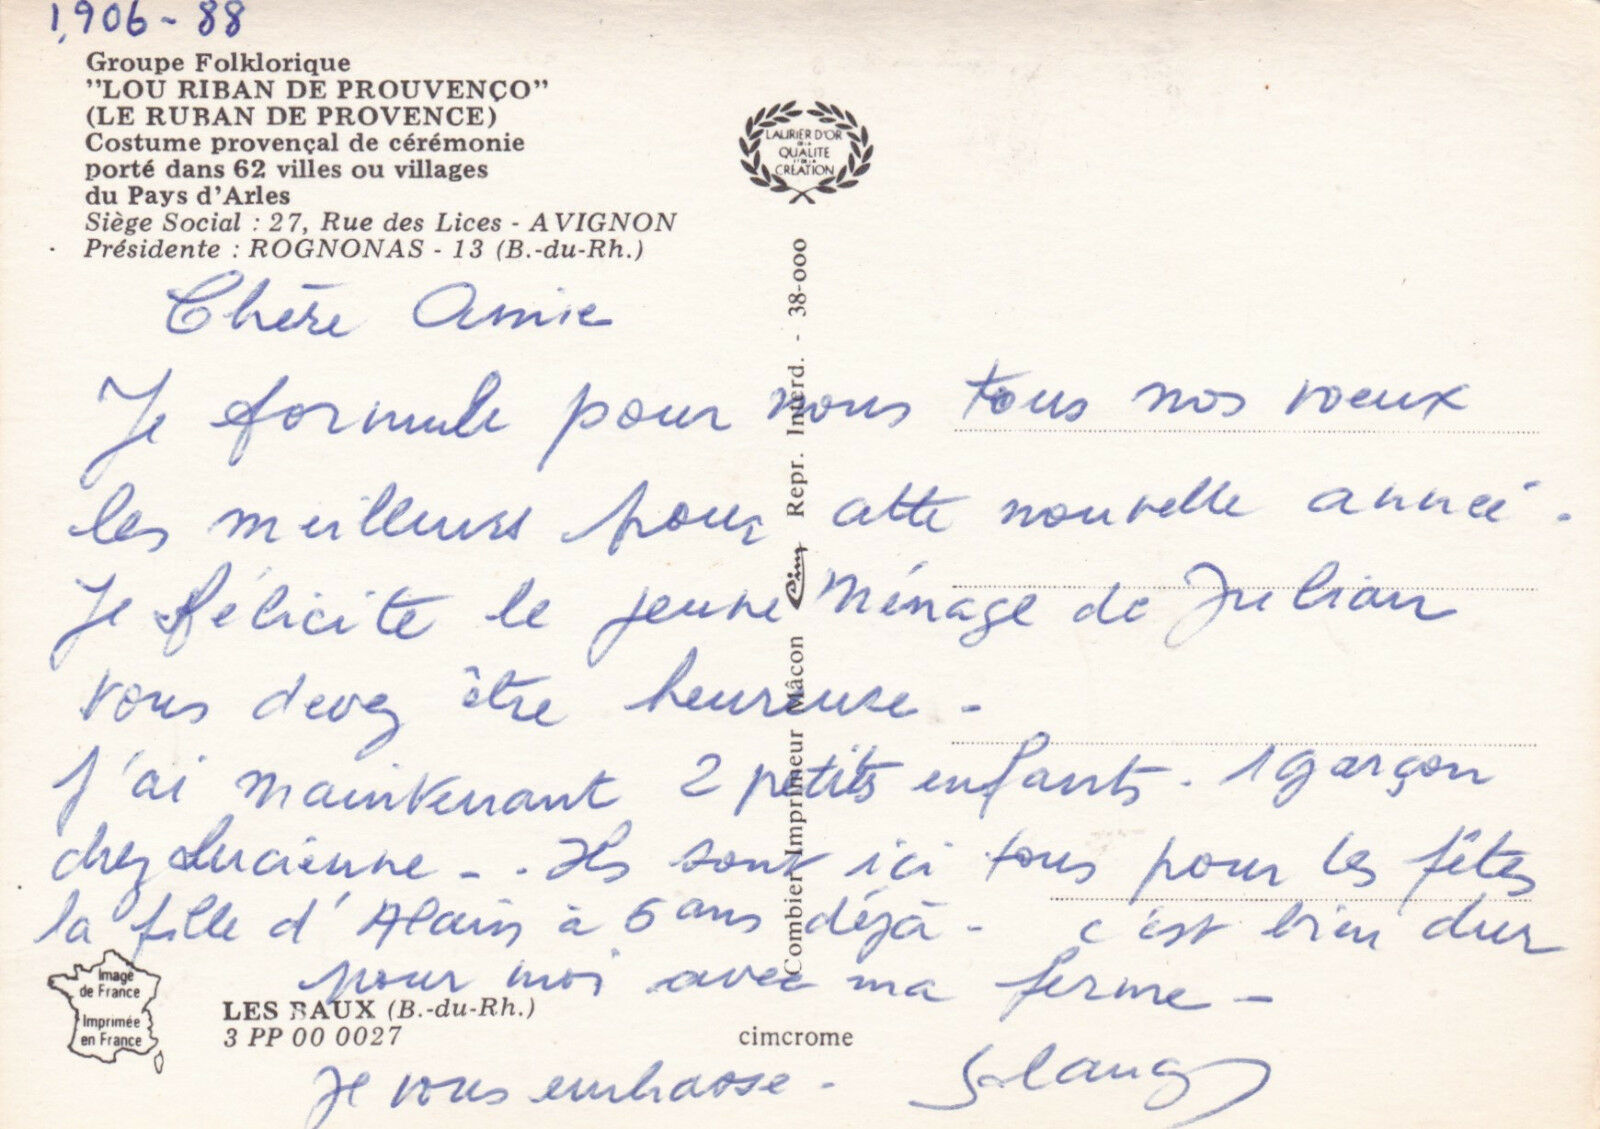 1,906-88
Groupe Folklorique
"LOU RIBAN DE PROUVENÇO"
(LE RUBAN DE PROVENCE)
Costume provençal de cérémonie
porté dans 62 villes ou villages
du Pays d'Arles
Siège Social : 27, Rue des Lices - AVIGNON
Présidente : ROGNONAS - 13 (B.-du-Rh.)
LAURIER D'OR
DE LA
QUALITE
ET DE LA
CRÉATION
Chère Amie
Je formule pour vous tous nos voeux
les meilleurs pour cette nouvelle année.
Je félicite le jeune Ménage de Julian
vous devez être heureuse -
J'ai maintenant 2 petits enfants. 1 garçon
chez Lucienne - . Ils sont ici tous pour les fêtes
la fille d'Alain à 6 ans déjà - c'est bien dur
pour moi avec ma ferme -
Je vous embrasse - Solange
Combier Imprimeur Mâcon Cim Repr. Interd. - 38-000
Image
de France
Imprimée
en France
LES BAUX (B.-du-Rh.)
3 PP 00 0027
cimcrome